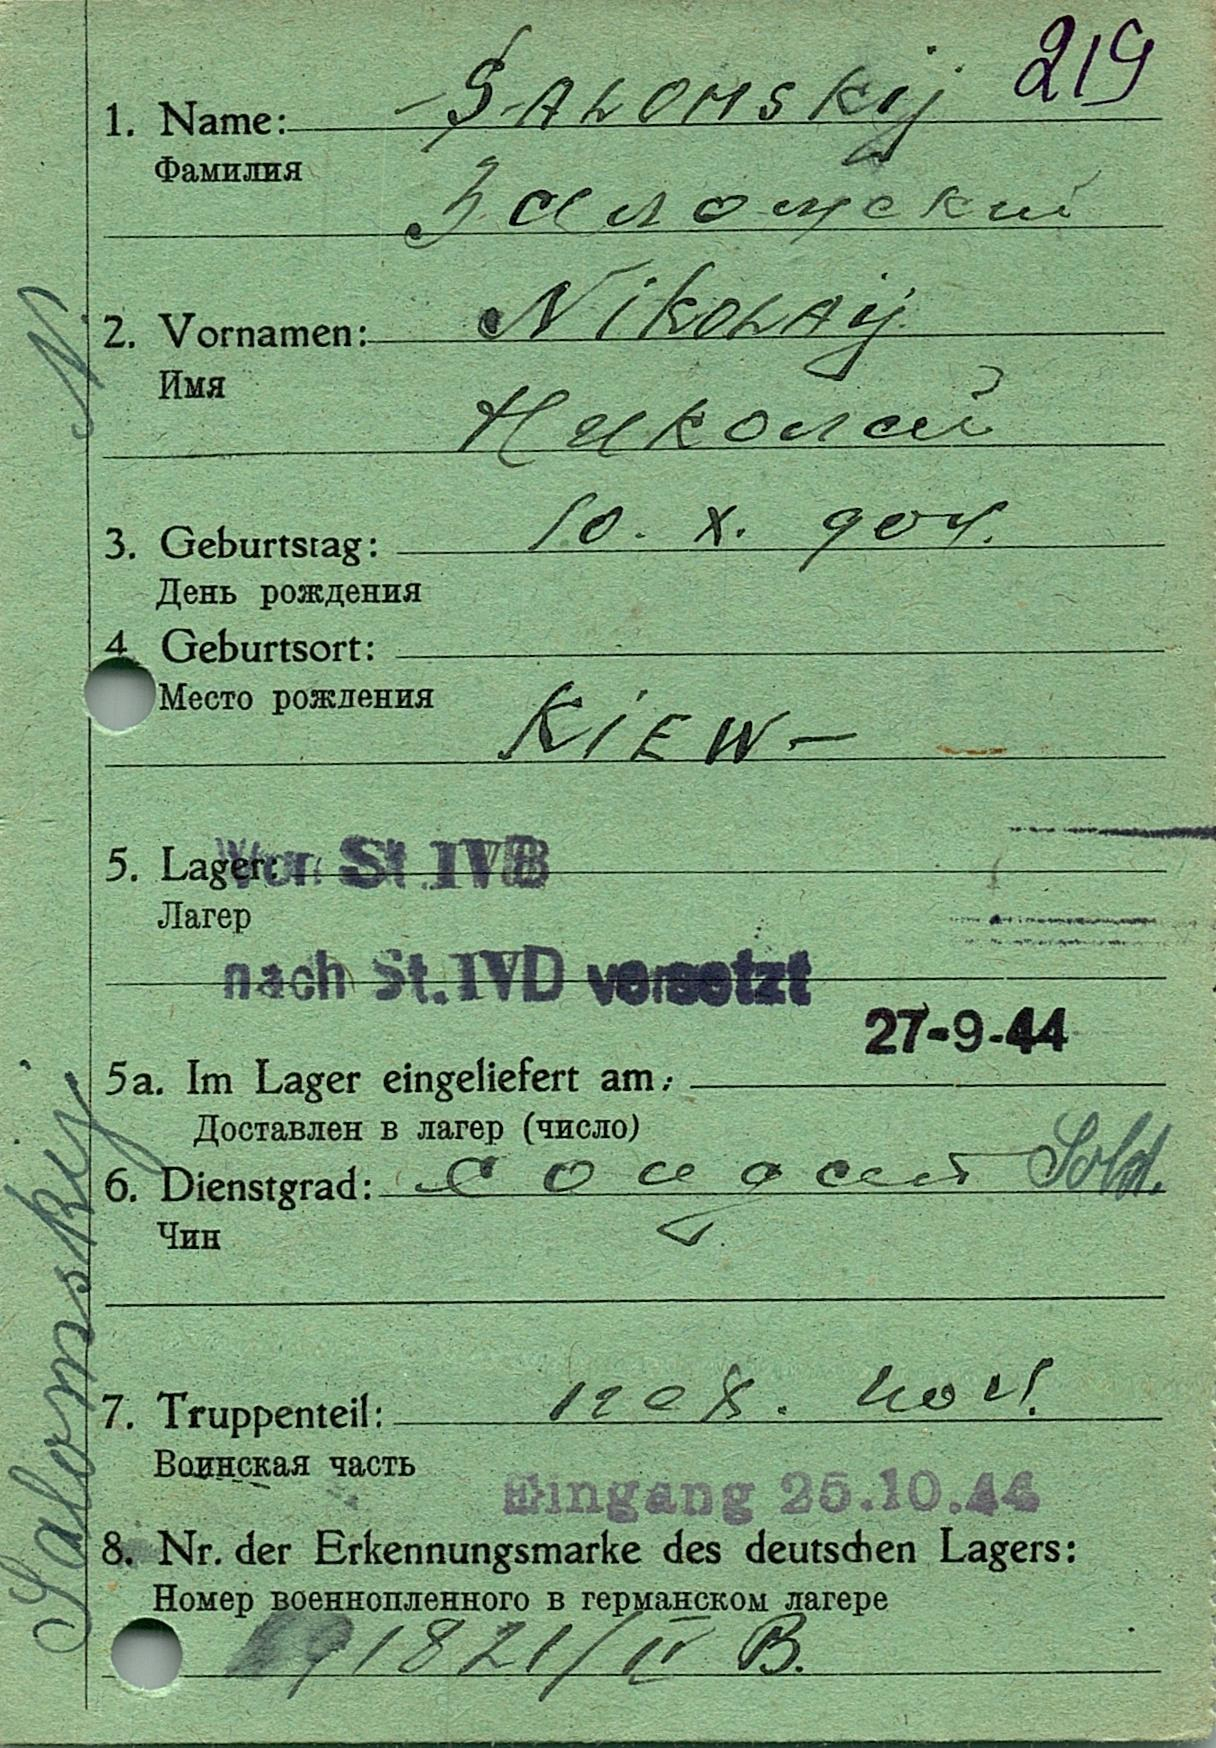 219
1. Name: Salomskij
Фамилия
Заломский
2. Vornamen: Nikolaij
Имя
Николай
3. Geburtstag: 10. X. 904.
День рождения
4. Geburtsort:
Место рождения
KIEW-
5. Lager: Von St. IVB
Лагер
nach St. IVD versetzt
27-9-44
5a. Im Lager eingeliefert am:
Доставлен в лагер (число)
6. Dienstgrad: Солдат Sold.
Чин
7. Truppenteil: пех. пол.
Воинская часть
Eingang 25.10.44
8. Nr. der Erkennungsmarke des deutschen Lagers:
Номер военнопленного в германском лагере
1821/IV B.
Salomskij N.